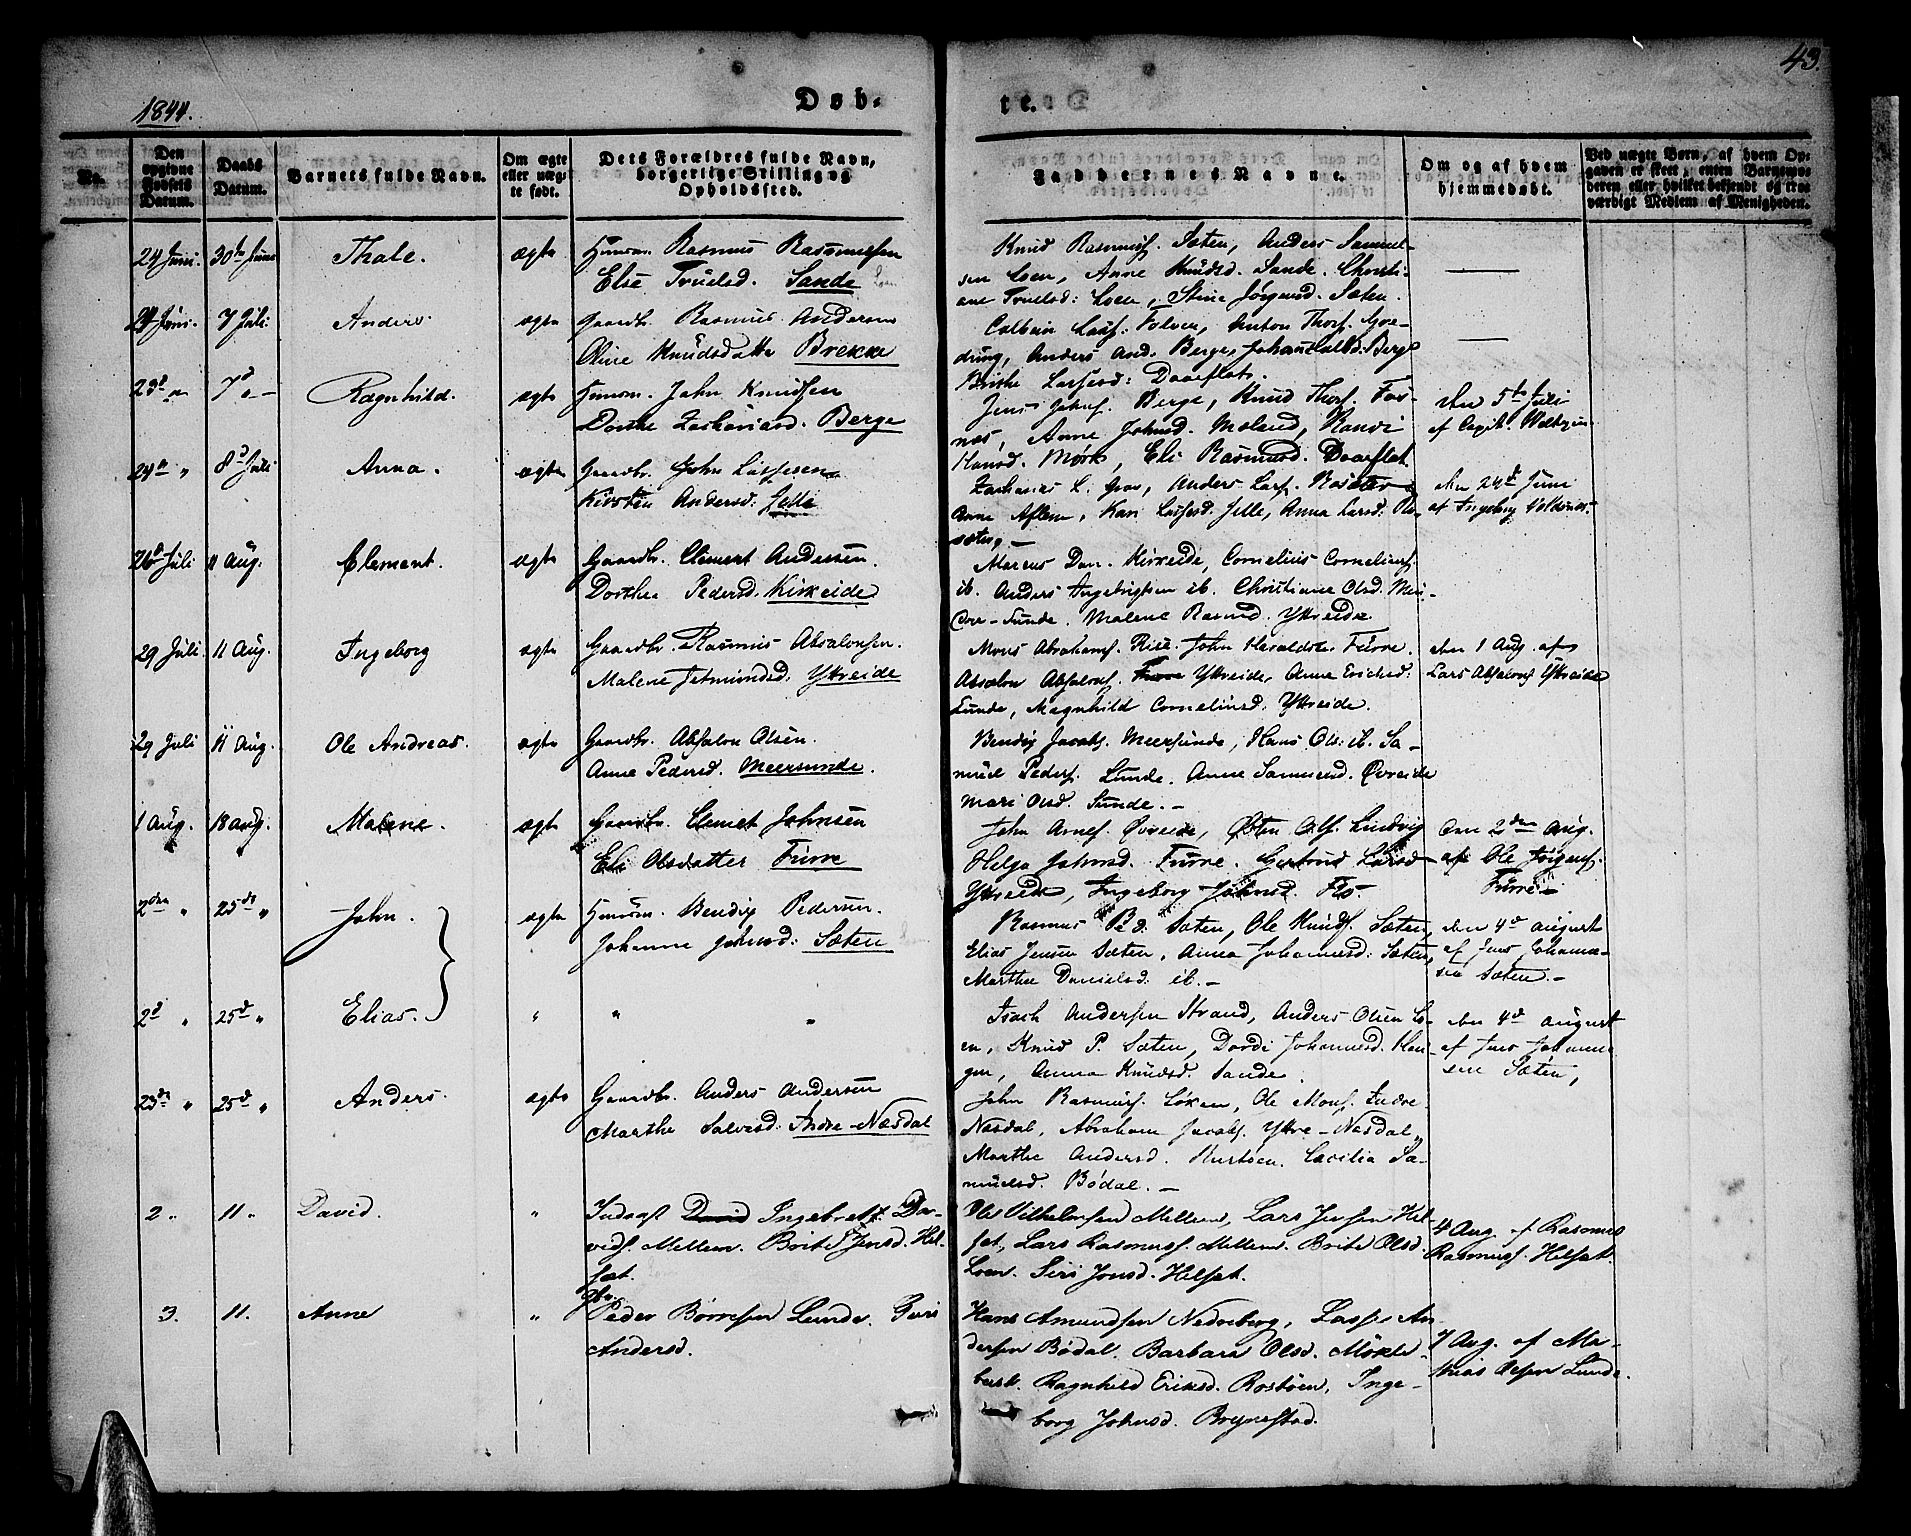 43.
1844.
Døb-
te.
No.
Den opgivne Fødsels Datum.
Daabs Datum.
Barnets fulde Navn.
Om ægte eller uægte født.
Dets Forældres fulde Navn, borgerlige Stilling og Opholdssted.
Faddernes Navne.
Om og af hvem hjemmedøbt.
Ved uægte Børn, af hvem Opgaven er skeet, enten Barnemoderen eller hvilket bekjendt og troværdigt Medlem af Menigheden.
24 Juni. 30te Juni Thale. ægte Huusm. Rasmus Rasmussen
Else Truelsd. Sande
Knud Rasmusf. Sæten, Anders Samuel-
sen Loen, Anne Knudsd. Sande. Christi-
ane Truelsd: Loen, Stine Jørgensd. Sæten.
24 Juni. 7 Juli. Anders. ægte Gaardbr. Rasmus Andersen
Oline Knudsdatter Brekke
Colbein Lassf. Folven, Anton Thorf.
drung, Anders And. Berge, Berge
Larsesd: Daarflat.
23d " 7d " Ragnhild. ægte Huusm. John Knudsen
Dorthe Zachariasd. Berge
Jens Johnf. Berge, Knud Thorf. Fos-
næs, Anne Johnsd. Moland, Randi
Hansd. Mørk, Eli Rasmusd. Daarflat
den 5te Juli
af Capit.
24d " 8d Juli Anna. ægte Gaardbr. John Lassesen
Kirsten Andersd: Jelle
Zacharias L. Anders Larsf. Rosæter
Anne Aflem, Kari Lassesd. Jelle, Anna Larsd: Ro-
sæter,
den 24d Juni
af Ingeborg
26d Juli 11 Aug. Clement. ægte Gaardbr. Clement Andersen.
Dorthea Pedersd. Kirkeide
Marcus Dan. Kirkeide, Cornelius Corneliusf.
ib. Anders Ingebrigtsen ib. Christiane Olsd. Meer-
Sunde. Malene Rasmd. Ytreeide
29 Juli. 11 Aug. Ingeborg ægte Gaardbr. Rasmus Absalonsen.
Malene Jetmundsd. Ytreeide
Mons Abrahamf. Rise. John Haraldsen Furre.
Absalon Absalonf. Furre Ytreeide, Anne Ericksd.
Lunde, Magnhild Corneliusd. Ytreeide.
den 1 Aug. af
Lars Absalonf Ytreeide
29 Juli 11 Aug. Ole Andreas. ægte Gaardbr. Absalon Olsen.
Anne Pedersd. Meersunde.
Bendix Jacobf. Meersunde, Hans Ols: ib. Sa-
muel Pedersf. Lunde. Anne Samuelsd. Øvreeide
Mari Olsd. Sunde.
1 Aug. 18 Aug. Malene. ægte Gaardbr. Clemet Johnsen
Eli Olsdatter Furre
John Arnef. Øvreeide, Østen Olsf. Lindvig
Helga Johnsd. Furre. Gertrud Larsd
Ytreeide, Ingeborg Johnsd. Flo.
den 2den Aug.
af Ole Jørgenf.
Furre
2den " 25de " John. ægte Huusm. Bendix Pedersen.
Johanne Johnsd: Sæten
Rasmus Ped. Sæten, Ole Knudf. Sæten,
Elias Jensen Sæten, Anna Johannesd: Sæten,
Marthe Danielsd. ib.
den 4d August
af Jens Johanne-
sen Sæten.
2d " 25d " Elias. " " "
Isach Andersen Strand, Anders Olsen Lo-
en, Knud P. Sæten, Dordi Johannesd. Hau-
gen, Anna Knudsd. Sande.
den 4d August
af Jens Johanne-
sen Sæten,
23de " 25d " Anders. ægte Gaardbr. Anders Andersen
Marthe Salvesd. Indre-Næsdal
John Rasmusf. Løken, Ole Monsf. Indre
Næsdal, Abraham Jacobf. Ytre-Næsdal,
Marthe Andersd. Rustøen. Cecilia Sa-
muelsd. Bødal.
2 " 11 " David. " Indsat David Ingebretsf. Da-
vidsf. Mellem. Brite Jensd. Hel-
sæt.
Ole Vilhelmsen Mellem, Lars Jensen Hel-
sæt, Lars Rasmusf. Mellem. Brite Olsd.
Loen. Siri Jonsd. Helsæt.
4 Aug. af Rasmus
Rasmusf. Helsæt.
3. 11. Anne " Gbr.
Peder Børresen Lunde. Guri
Andersd.
Hans Amundsen Nedreberg, Lasse An-
dersen Bødal. Barbara Olsd. Møkle-
bust. Ragnhild Eriksd. Rostøen, Inge-
borg Johnsd. Brynestad.
7 Aug. af Ma-
thias Olsen Lunde.